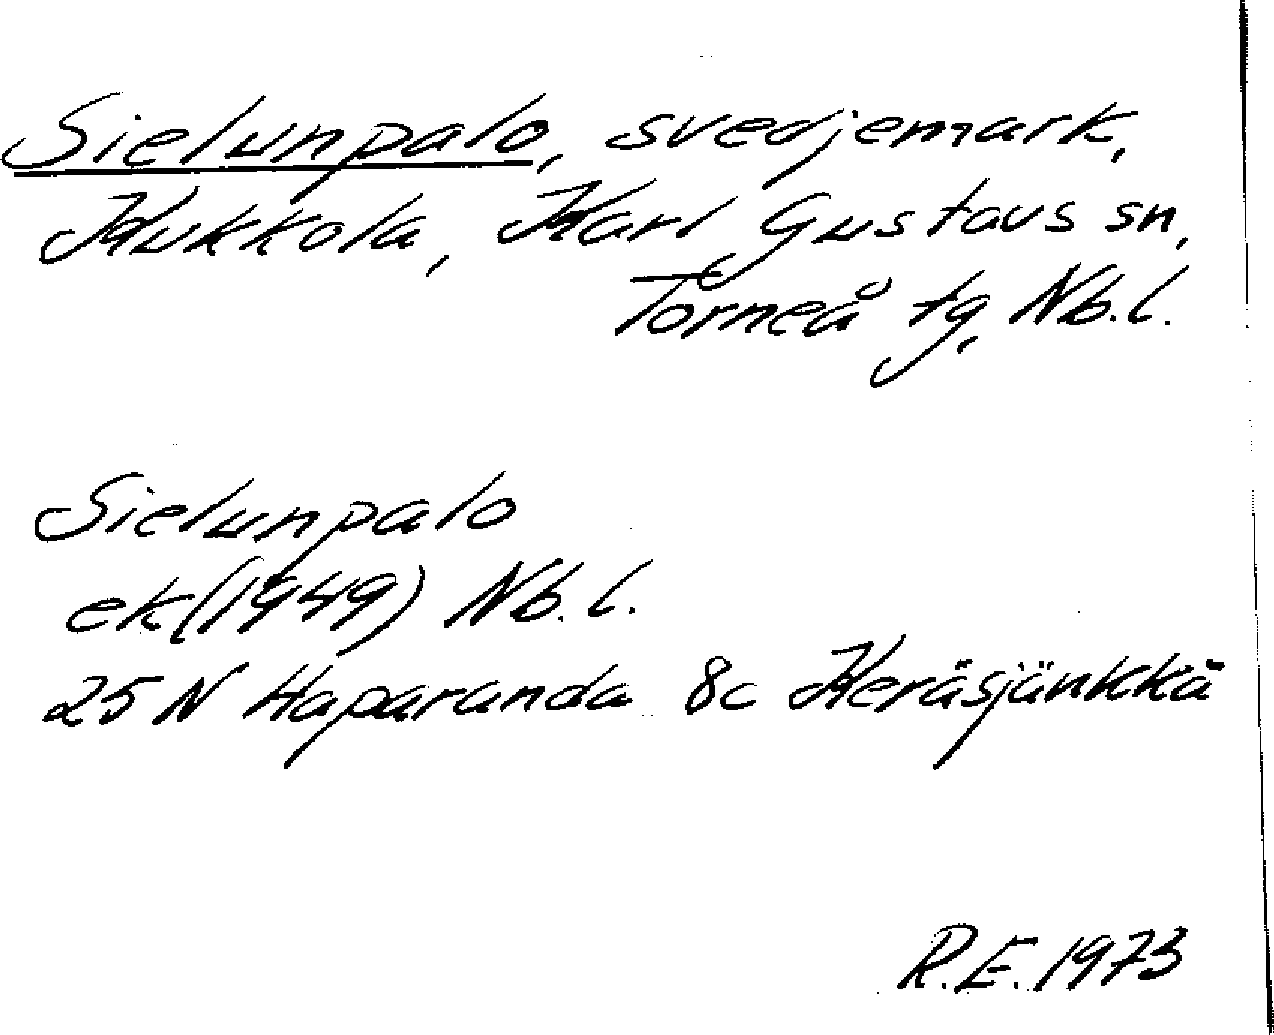 Sielunpalo, svedjemark,
Kukkola, Karl Gustavs sn,
Torneå tg, Nb.l.
Sielunpalo
ek (1949) Nb.l.
25 N Haparanda 8c Keräsjänkkä
R.E. 1973